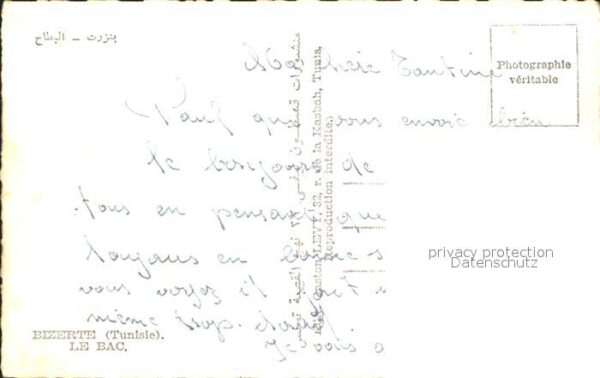 بنزرت - البطاح
Photographie
véritable
Ma chère Tantine
Paul qui vous envoie bien
le bonjours de
tous en pensant que
soyons en bonne s
vous voyez il fait
même trop chaud.
Je vais
منشورات
Gaston LEVY, 32, r. de la Kasbah, Tunis.
(Reproduction interdite)
BIZERTE (Tunisie).
LE BAC.
privacy protection
Datenschutz